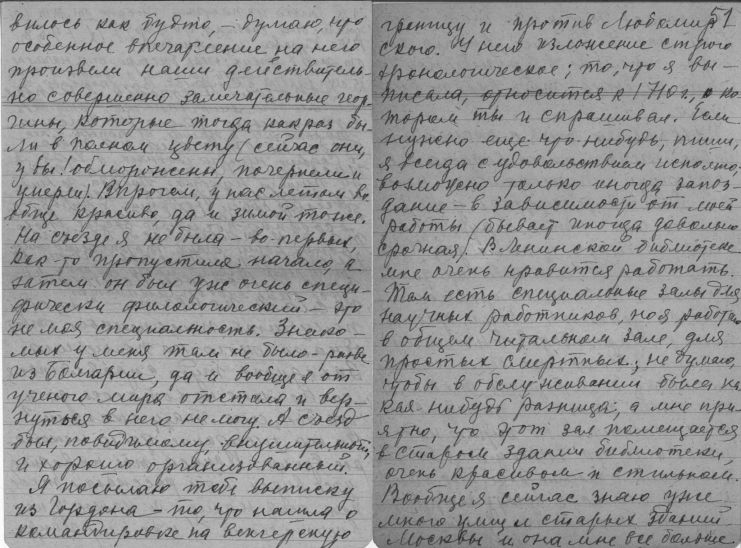 вилось как будто, – думаю, что
особенное впечатление на него
произвели наши действитель-
но совершенно замечательные геор-
гины, которые тогда как раз бы-
ли в полном цвету (сейчас они,
увы! обморожены, почернели и
умерли). Впрочем, у нас летом во-
обще красиво, да и зимой тоже.
На съезде я не была – во-первых,
как-то пропустила начало, а
затем он был уже очень специ-
фически филологический – это
не моя специальность. Знако-
мых у меня там не было – разве
из Болгарии, да и вообще я от
ученого мира отстала и вер-
нуться в него не могу. А съезд
был, повидимому, внушительный
и хорошо организованный.
Я посылаю тебе выписку
из Гордона – то, что нашла о
командировке на венгерскую
51
границу и против Любомир
ского. У него изложение строго
хронологическое; то, что я вы-
писала, относится к 1710 г., о ко
тором ты и спрашивал. Если
нужно еще что-нибудь, пиши,
я всегда с удовольствием исполню.
возможно только иногда запоз-
дание – в зависимости от моей
работы (бывает иногда довольно
срочная). В Ленинской библиотеке
мне очень нравится работать.
Там есть специальные залы для
научных работников, но я работаю
в общем читальном зале, для
простых смертных; не думаю,
чтобы в обслуживании была ка
кая-нибудь разница; а мне при-
ятно, что этот зал помещается
в старом здании библиотеки,
очень красивом и стильном.
Вообще я сейчас знаю уже
много улиц и старых зданий
Москвы и она мне все больше